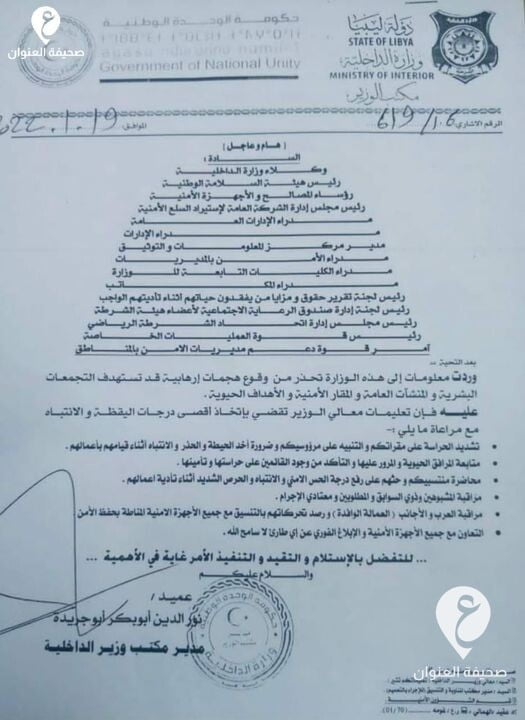 صحيفة العنوان
حكومة الوحدة الوطنية
Government of National Unity
دولة ليبيا
STATE OF LIBYA
وزارة الداخلية
MINISTRY OF INTERIOR
مكتب الوزير
الرقم الاشاري 619/1.6
الموافق 2022.1.19
( هام وعاجل )
السادة :
وكلاء وزارة الداخلية
رئيس هيئة السلامة الوطنية
رؤساء المصالح و الأجهزة الأمنية
رئيس مجلس إدارة الشركة العامة لإستيراد السلع الأمنية
مدراء الإدارات العامة
مدراء الإدارات
مدير مركز المعلومات و التوثيق
مدراء الأمن بالمديريات
مدراء الكليات التابعة للوزارة
مدراء المكاتب
رئيس لجنة تقرير حقوق و مزايا من يفقدون حياتهم أثناء تأديتهم الواجب
رئيس لجنة إدارة صندوق الرعاية الاجتماعية لأعضاء هيئة الشرطة
رئيس مجلس إدارة اتحاد الشرطة الرياضي
رئيس قوة العمليات الخاصة
آمر قوة دعم مديريات الامن بالمناطق
بعد التحية ...
وردت معلومات إلى هذه الوزارة تحذر من وقوع هجمات إرهابية قد تستهدف التجمعات
البشرية و المنشآت العامة و المقار الأمنية و الأهداف الحيوية .
عليه فإن تعليمات معالي الوزير تقضي بإتخاذ أقصى درجات اليقظة و الانتباه
مع مراعاة ما يلي :-
• تشديد الحراسة على مقراتكم و التنبيه على مرؤسيكم و ضرورة أخد الحيطة و الحذر و الانتباه أثناء قيامهم بأعمالهم .
• متابعة المرافق الحيوية و المرور عليها و التأكد من وجود القائمين على حراستها و تأمينها .
• محاضرة منتسبيكم و حثهم على رفع درجة الحس الامني و الانتباه و الحرص الشديد أثناء تأدية اعمالهم .
• مراقبة المشبوهين وذوي السوابق و المطلوبين و معتادي الإجرام .
• مراقبة العرب و الأجانب ( العمالة الوافدة ) و رصد تحركاتهم بالتنسيق مع جميع الأجهزة الامنية المناطة بحفظ الأمن
• التعاون مع جميع الأجهزة الأمنية و الإبلاغ الفوري عن إي طارئ لا سامح الله .
... للتفضل بالإستلام و التقيد و التنفيذ الأمر غاية في الأهمية ...
والسلام عليكم
عميد /
نور الدين أبوبكر أبوجريدة
مدير مكتب وزير الداخلية
حكومة الوحدة الوطنية
وزارة الداخلية
صحيفة العنوان
(01/70)